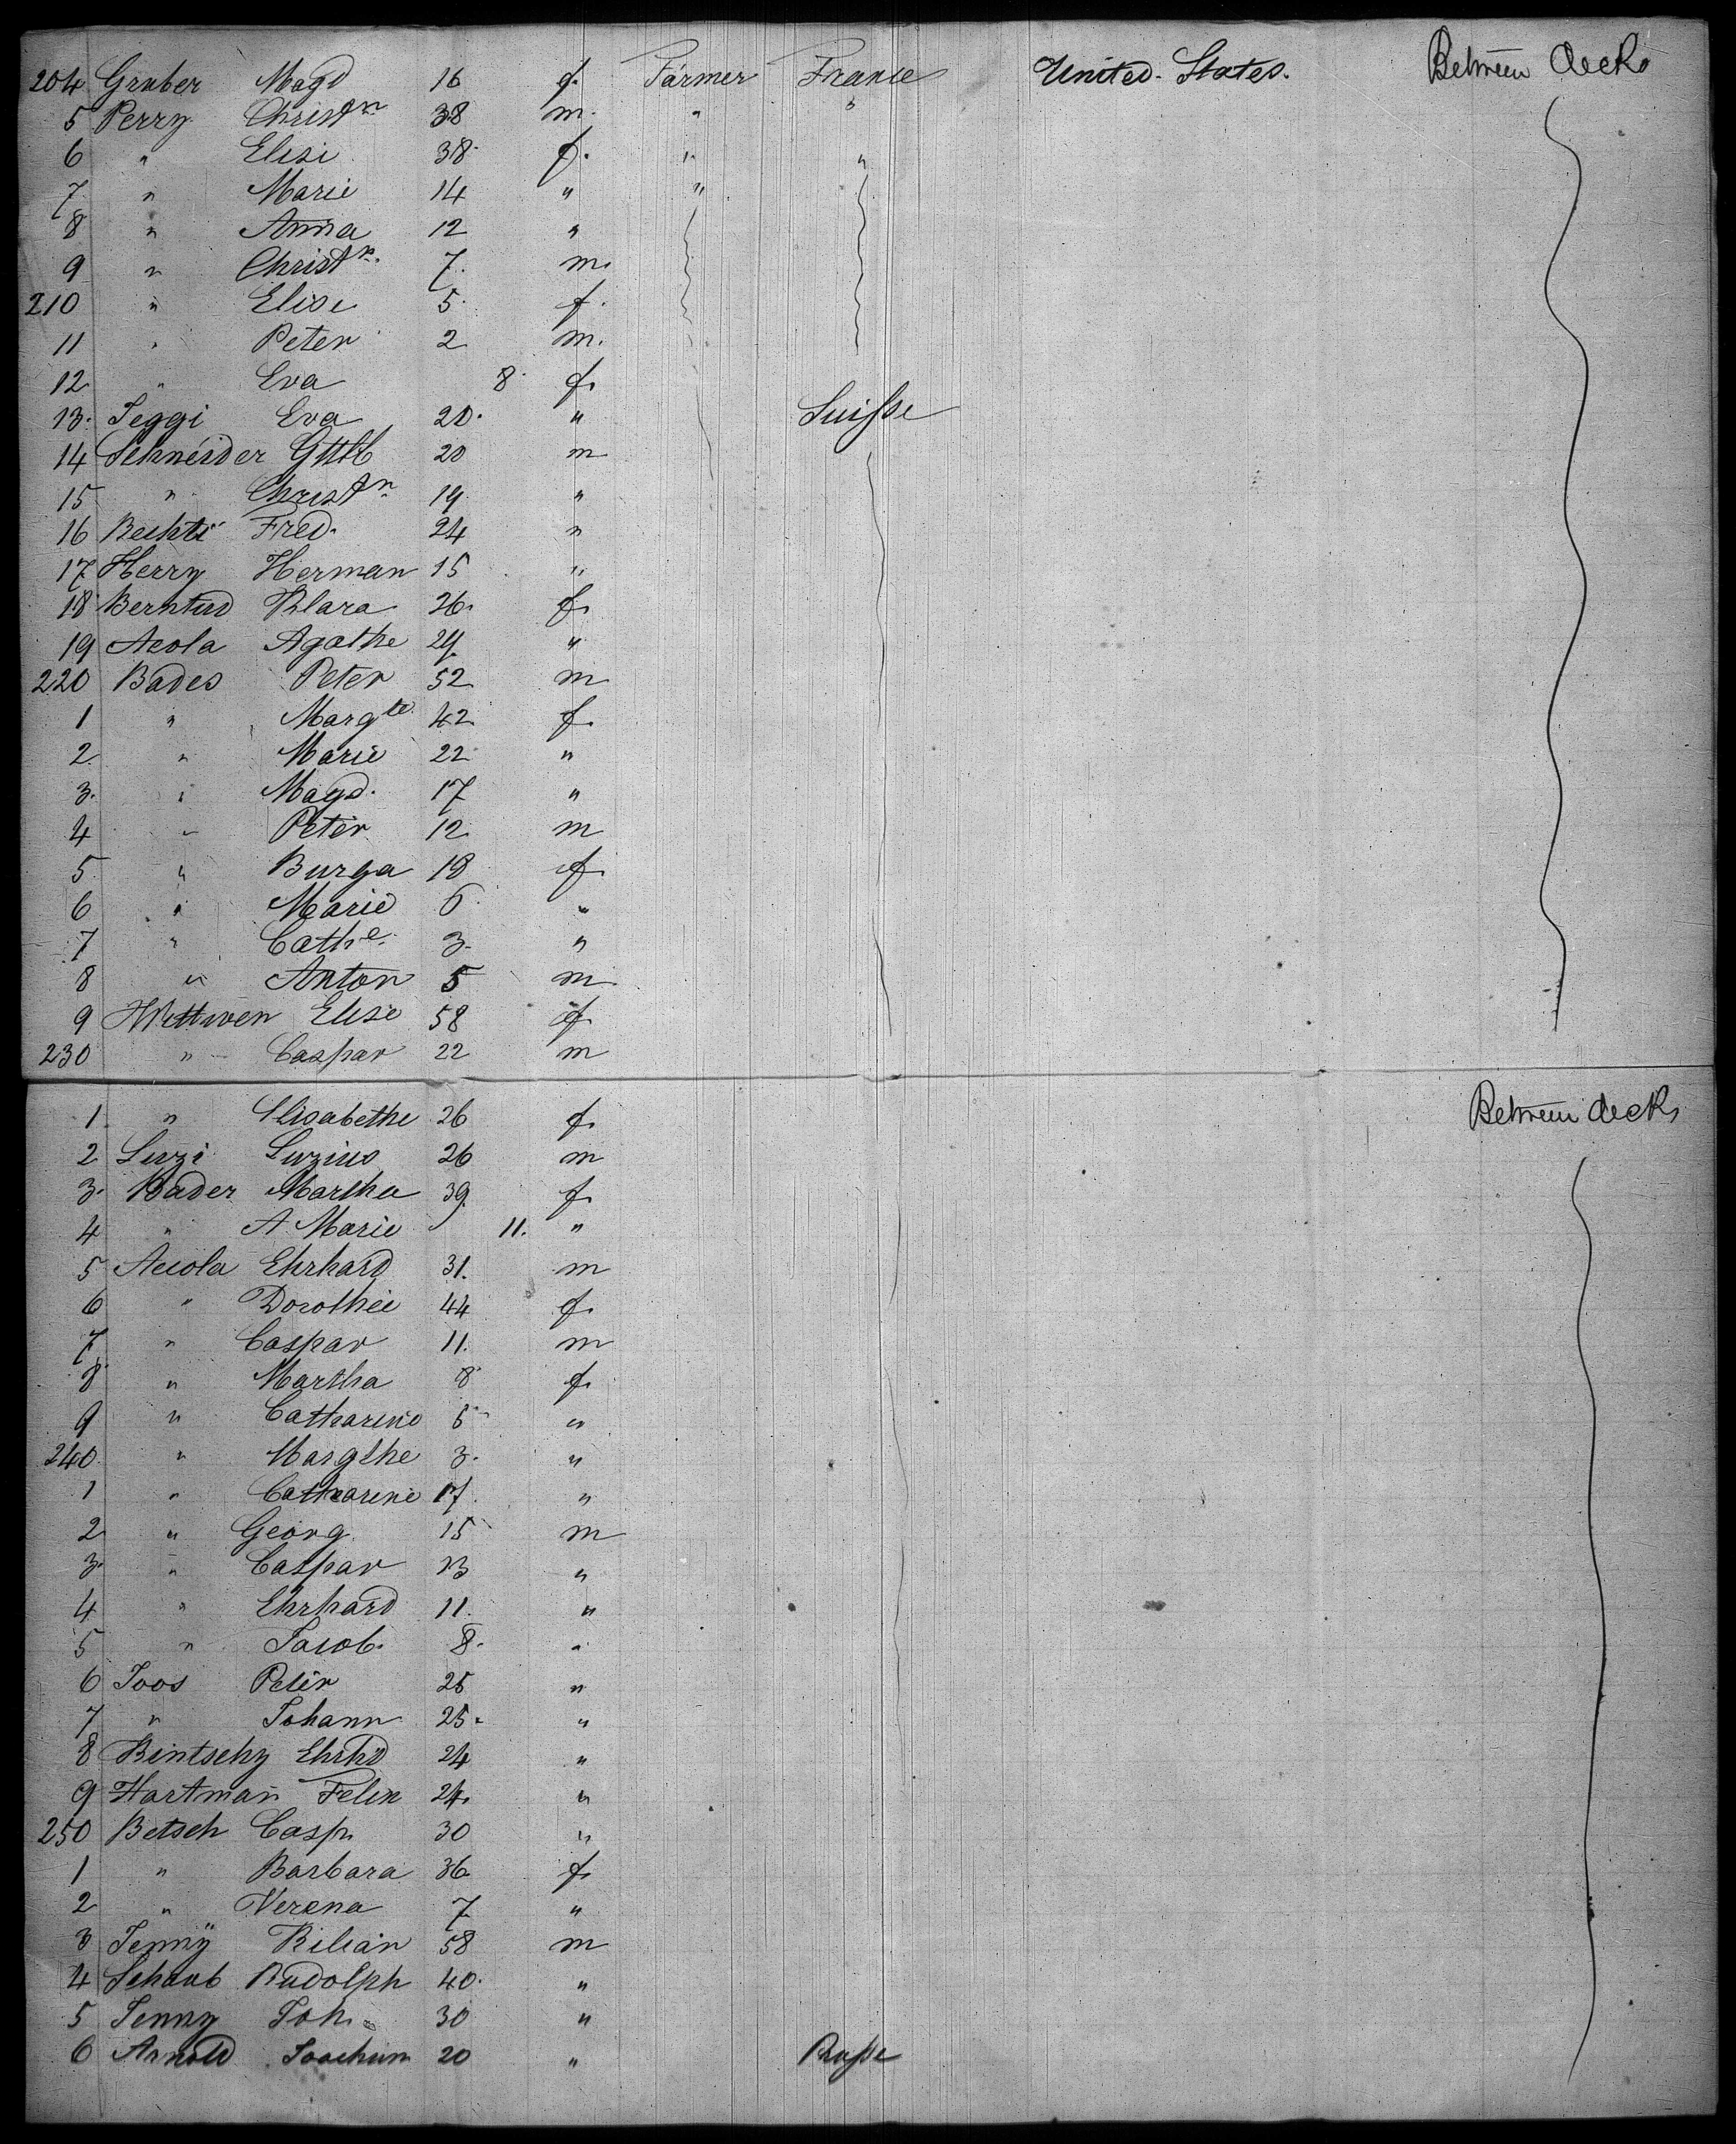 204 Gruber Magd 16 f. Farmer France United States. Between decks
5 Perry Christn 38 m. " "
6 " Elisi 38 f. " "
7 " Marie 14 " "
8 " Anna 12 "
9 " Christn. 7. m.
210 " Elise 5 f.
11 " Peter 2 m.
12 " Eva 8 f.
13. Jeggi Eva 20. " Suisse
14 Schneider Gttlb 20 m
15 " Christn 19 "
16 Bechti Fred. 24 "
17 Herry Herman 15 "
18 Klara 26. f.
19 Acola Agathe 29 "
220 Bades Peter 52 m
1 " Margte 42 f.
2 " Marie 22 "
3. " Magd. 17 "
4 " Peter 12 m
5 " Burga 18 f.
6 " Marie 6 "
7 " Cathe. 3. "
8 " Anton 5 m
9 Elise 58 f
230 " Caspar 22 m
1 " Elisabethe 26 f. Between decks
2 Luzi Luzius 26 m
3. Bader Martha 39 f.
4 " A Marie 11. "
5 Accola Ehrhard 31. m
6 " Dorothée 44 f.
7 " Caspar 11. m
8 " Martha 8 f.
9 " Catharine 5 "
240 " Margthe 3. "
1 " Catharine 17. "
2 " Georg 15 m
3. " Caspar 13 "
4 " Ehrhard 11. "
5 " Jacob. 8. "
6 Joos Peter 25 "
7 " Johann 25. "
8 Bintschy Ehrhd 24 "
9 Hartman Felix 24. "
250 Betsch Casp. 30 "
1 " Barbara 36 f.
2 " Verena 7 "
3 Jenny Kilian 58 m
4 Schaub Rudolph 40. "
5 Jenny Joh. 30 "
6 Arnold Joachim 20 " Russe